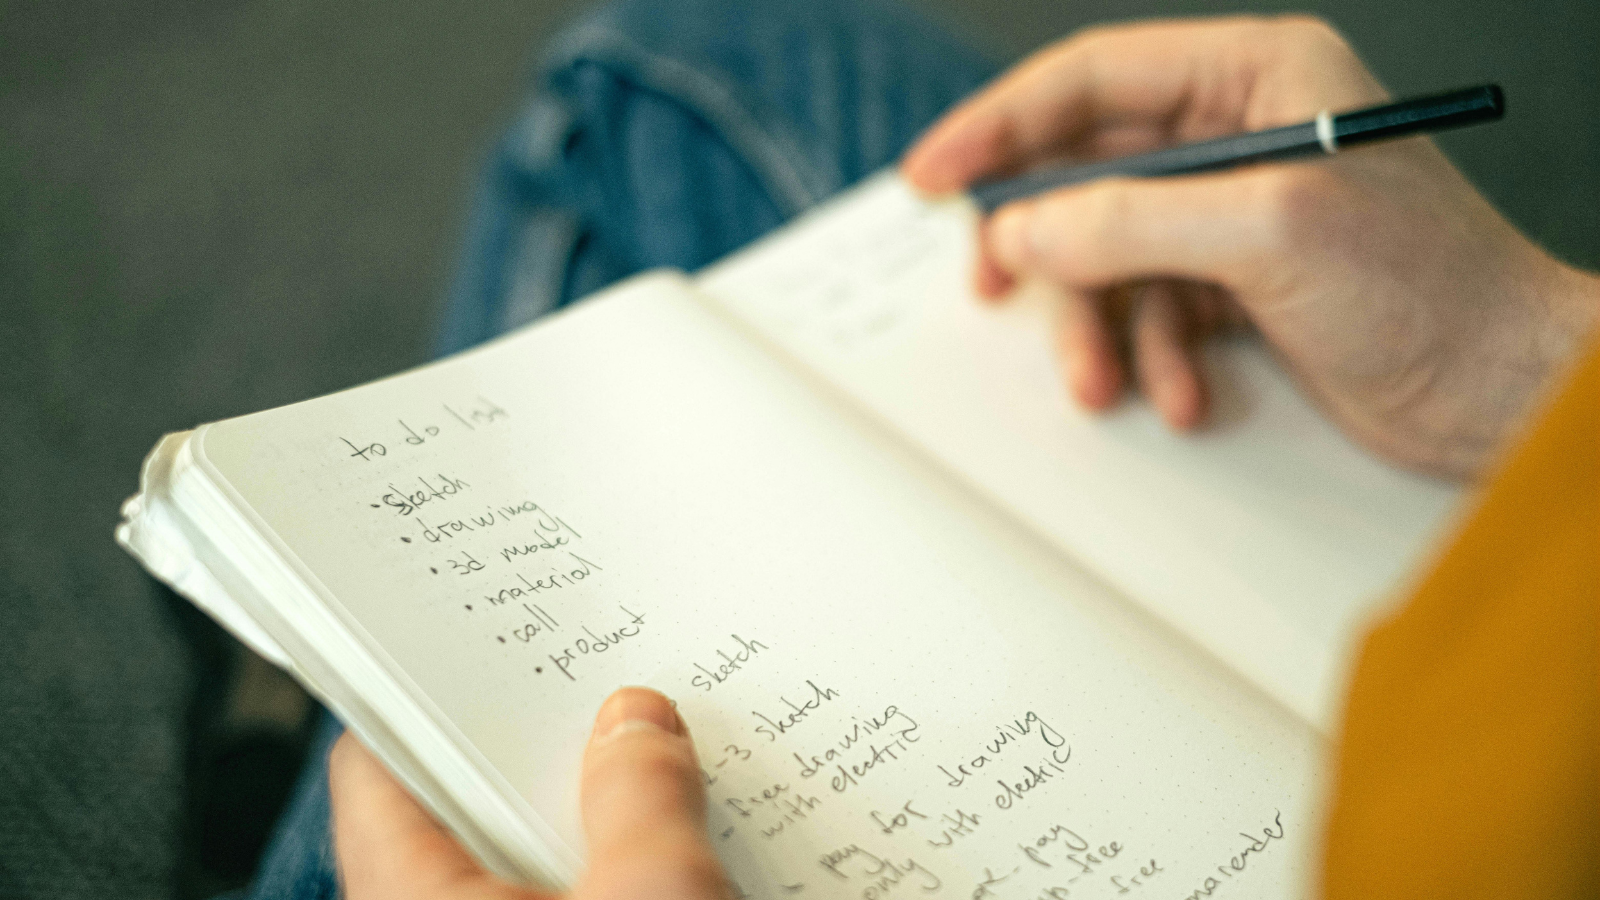 to do list
• sketch
• drawing
• 3d model
• material
• call
• product
sketch
2-3 sketch
- free drawing
with electric
- pay for drawing
only with electric
pay
free
free